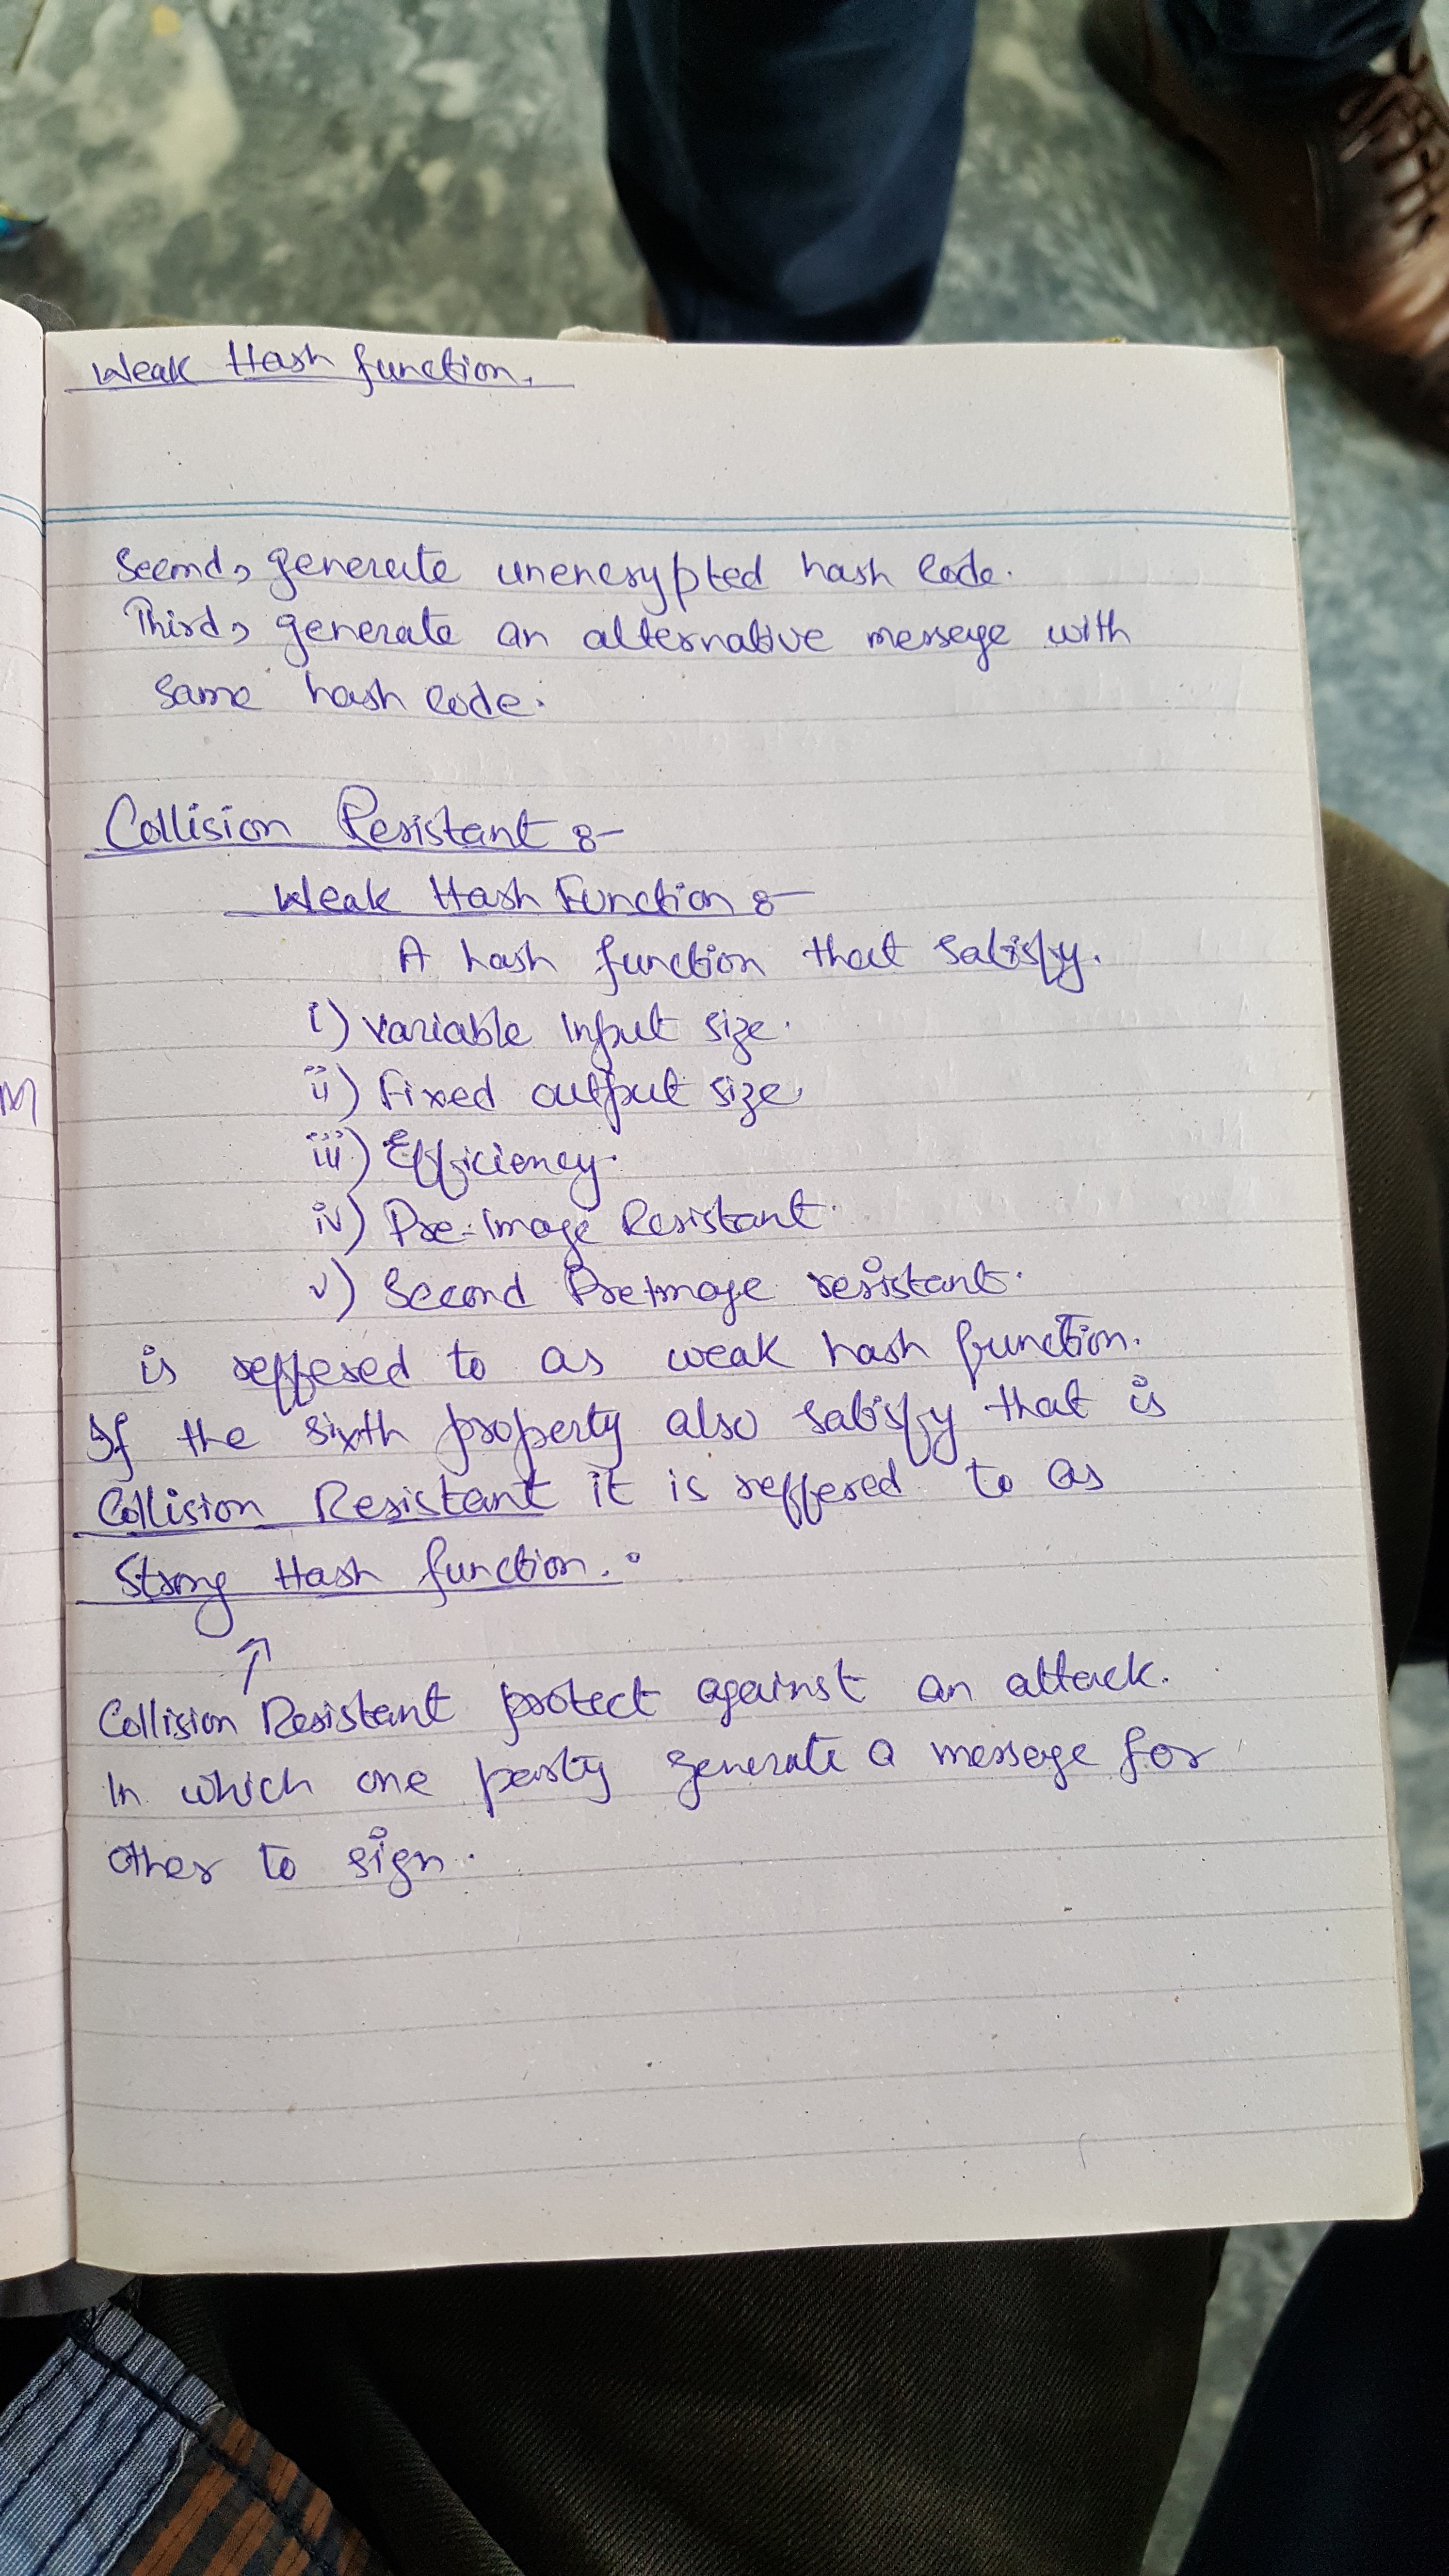 Weak Hash function.
Second, generate unencrypted hash code.
Third, generate an alternative message with
same hash code.
Collision Resistant :-
Weak Hash Function :-
A hash function that satisfy.
i) variable Input size.
ii) fixed output size
iii) Efficiency.
iv) Pre-Image Resistant.
v) Second PreImage resistant.
is reffered to as weak hash function.
If the sixth property also satisfy that is
Collision Resistant it is reffered to as
Strong Hash function.
↑
Collision Resistant protect against an attack.
In which one party generate a message for
other to sign.
M